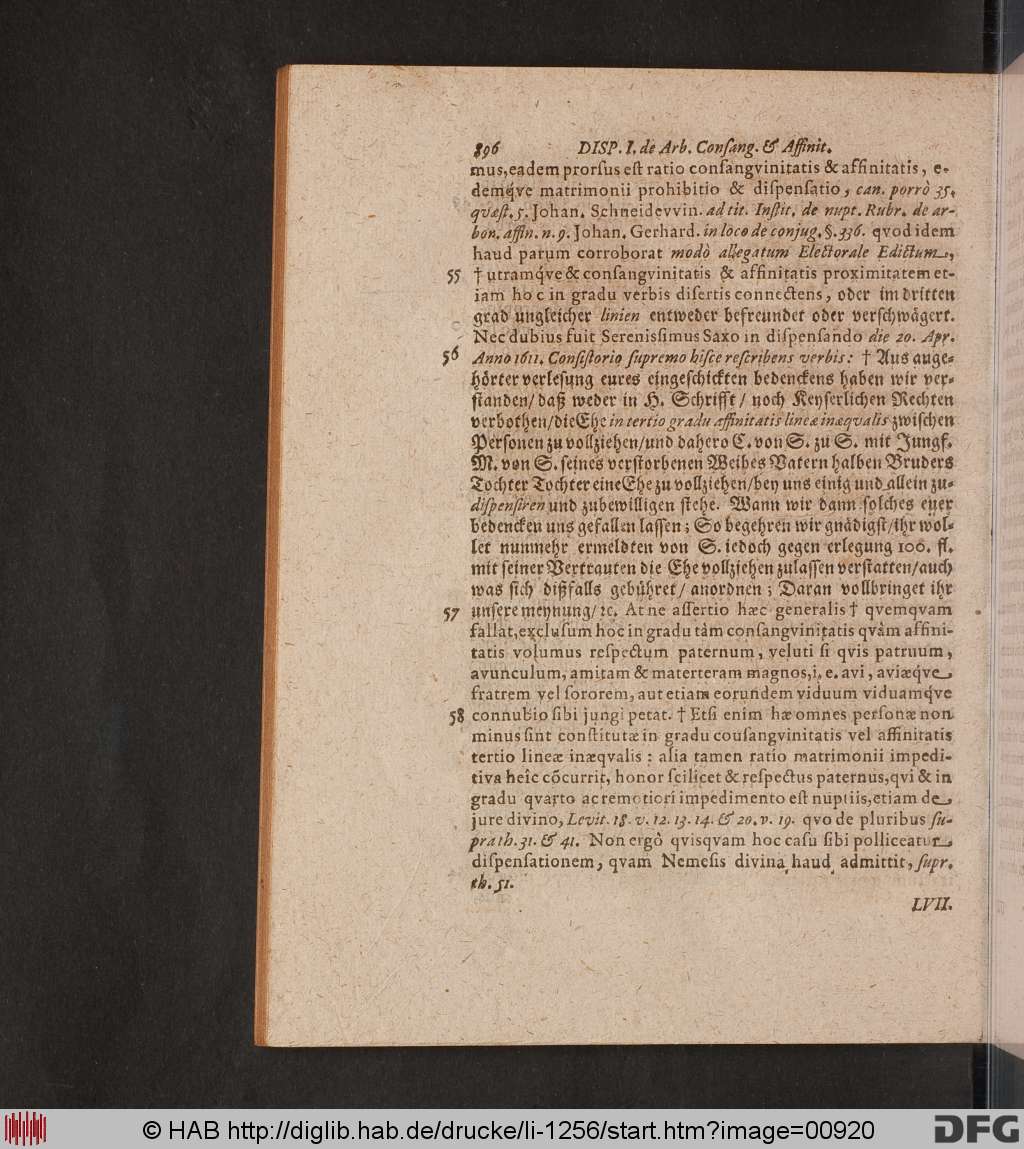 896 DISP. I. de Arb. Consang. & Affinit.
mus, eadem prorsus est ratio consangvinitatis & affinitatis, e-
demq́ve matrimonii prohibitio & dispensatio, can. porrò 35.
qvæst. 5. Johan. Schneidevvin. ad tit. Instit. de nupt. Rubr. de ar-
bon. affin. n. 9. Johan. Gerhard. in loco de conjug. §. 336. qvod idem
haud parum corroborat modò allegatum Electorale Edictum,
55 † utramq́ve & consangvinitatis & affinitatis proximitatem et-
iam hoc in gradu verbis disertis connectens, oder im dritten
grad ungleicher linien entweder befreundet oder verschwägert.
Nec dubius fuit Serenissimus Saxo in dispensando die 20. Apr.
56 Anno 1611. Consistorio supremo hisce rescribens verbis: † Aus ange-
hörter verlesung eures eingeschickten bedenckens haben wir ver-
standen / daß weder in H. Schrifft / noch Keyserlichen Rechten
verbothen / die Ehe in tertio gradu affinitatis lineæ inæqvalis zwischen
Personen zu vollziehen / und dahero C. von S. zu S. mit Jungf.
M. von S. seines verstorbenen Weibes Vatern halben Bruders
Tochter Tochter eine Ehe zu vollziehen / bey uns einig und allein zu-
dispensiren und zubewilligen stehe. Wann wir dann solches euer
bedencken uns gefallen lassen; So begehren wir gnädigst / ihr wol-
let nunmehr ermeldten von S. iedoch gegen erlegung 100. fl.
mit seiner Vertrauten die Ehe vollziehen zulassen verstatten / auch
was sich dißfalls gebühret / anordnen; Daran vollbringet ihr
57 unsere meynung / ꝛc. At ne assertio hæc generalis † qvemqvam
fallat, exclusum hoc in gradu tàm consangvinitatis qvàm affini-
tatis volumus respectum paternum, veluti si qvis patruum,
avunculum, amitam & materteram magnos, i. e. avi, aviæq́ve
fratrem vel sororem, aut etiam eorundem viduum viduamq́ve
58 connubio sibi jungi petat. † Etsi enim hæ omnes personæ non
minus sint constitutæ in gradu cousangvinitatis vel affinitatis
tertio lineæ inæqvalis: alia tamen ratio matrimonii impedi-
tiva heîc cõcurrit, honor scilicet & respectus paternus, qvi & in
gradu qvarto ac remotiori impedimento est nuptiis, etiam de
jure divino, Levit. 18. v. 12. 13. 14. & 20. v. 19. qvo de pluribus su-
pra th. 31. & 41. Non ergò qvisqvam hoc casu sibi polliceatur
dispensationem, qvam Nemesis divina haud admittit, supr.
th. 51.
LVII.
© HAB http://diglib.hab.de/drucke/li-1256/start.htm?image=00920
DFG